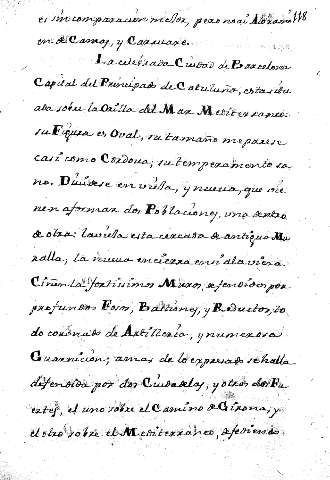 es sin comparacion mellor, pero no ai Abrami 118
en de Camos, y Carruaxe.
La celebrada Ciudad de Barcelona
Capital del Principado de Cataluña, esta situ
ada sobre la Orilla del Mar Mediterraneo:
su Figura es Oval, su tamaño me parese
casi como Cordova; su temperamento sa
no. Dividese en viella, y nueva, que vie
nen a formar dos Poblaciones, una dentro
de otra: la viella esta cercada de antigua Mu
ralla; la nueva encierra en si a la viexa.
Ciñenla fortissimos Muros, defendidos por
profundos Fosos, Baltiones, y Reductos, to
do coronado de Artilleria, y numerosa
Guarnicion; a mas de lo expresado se halla
defendida por dos Ciudadelas, y otros dos Fu
ertes, el uno sobre el Camino de Girona, y
el otro sobre el Mediterraneo, defeniendo